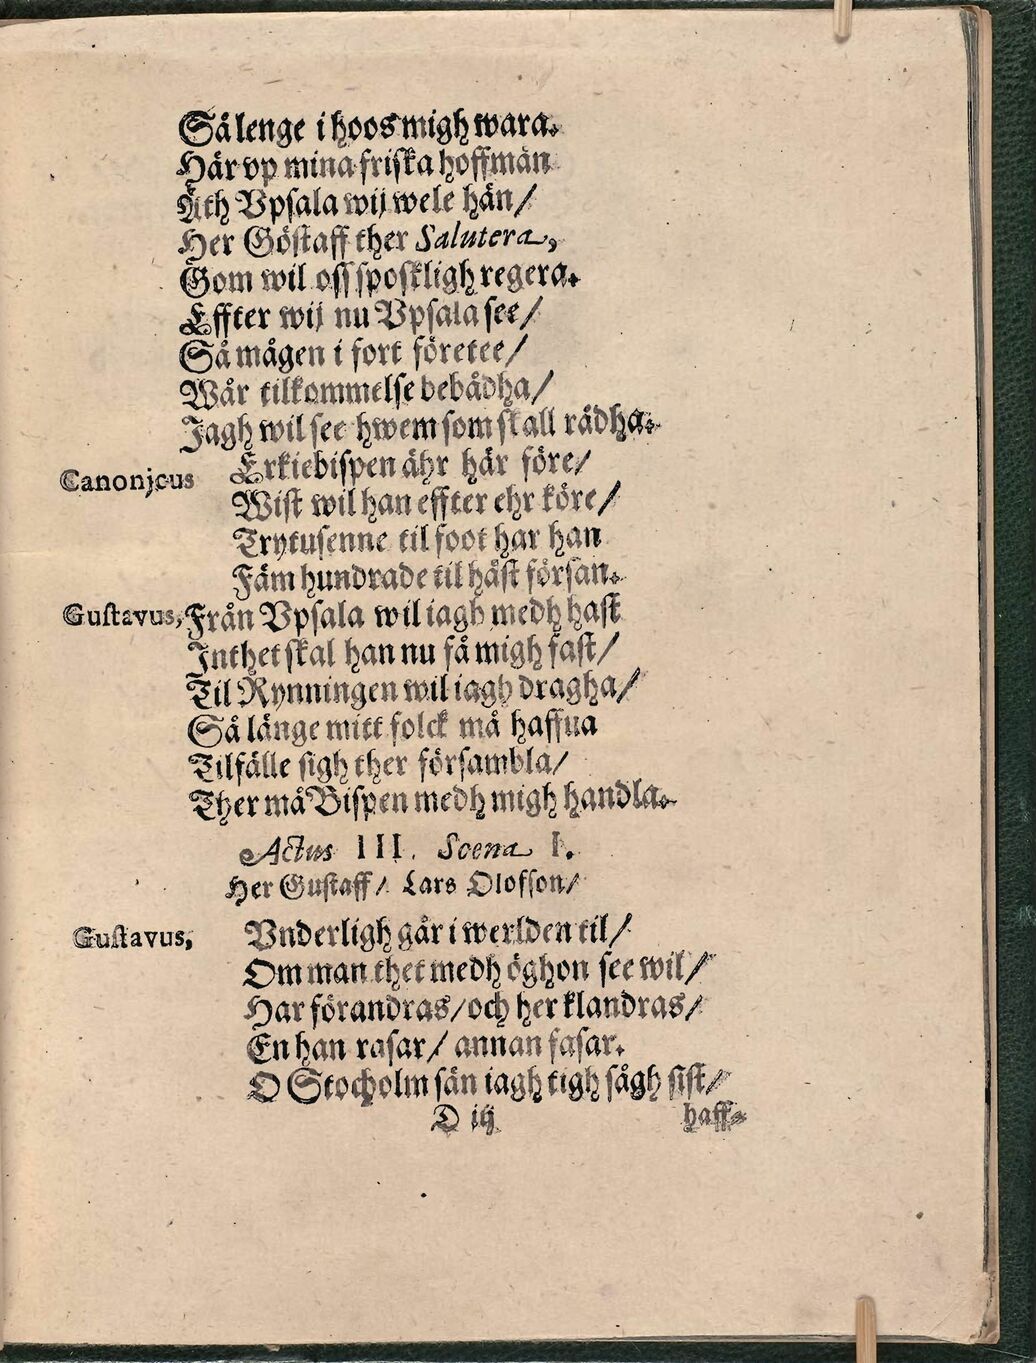 Så lenge i hoos migh wara.
Här vp mina friska hoffmän
Åth Vpsala wij wele hän/
Her Göstaff ther Salutera,
Gom wil oss sposkligh regera.
Effter wij nu Vpsala see/
Så mågen i fort företee/
Wår tilkommelse bebådha/
Jagh wil see hwem som skall rådha.
Canonjcus Erkiebispen ähr här före/
Wist wil han effter ehr köre/
Trytusenne til foot har han
Fäm hundrade til häst försan.
Gustavus, Från Vpsala wil iagh medh hast
Inthet skal han nu få migh fast/
Til Rynningen wil iagh dragha/
Så länge mitt folck må haffua
Tilfälle sigh ther försambla/
Ther må Bispen medh migh handla.
Actus III. Scena I.
Her Gustaff/ Lars Olofson/
Gustavus, Vnderligh går i werlden til/
Om man thet medh öghon see wil/
Har förandras/ och her klandras/
En han rasar/ annan fasar.
O Stocholm sän iagh tigh sågh sist/
D iij haff-